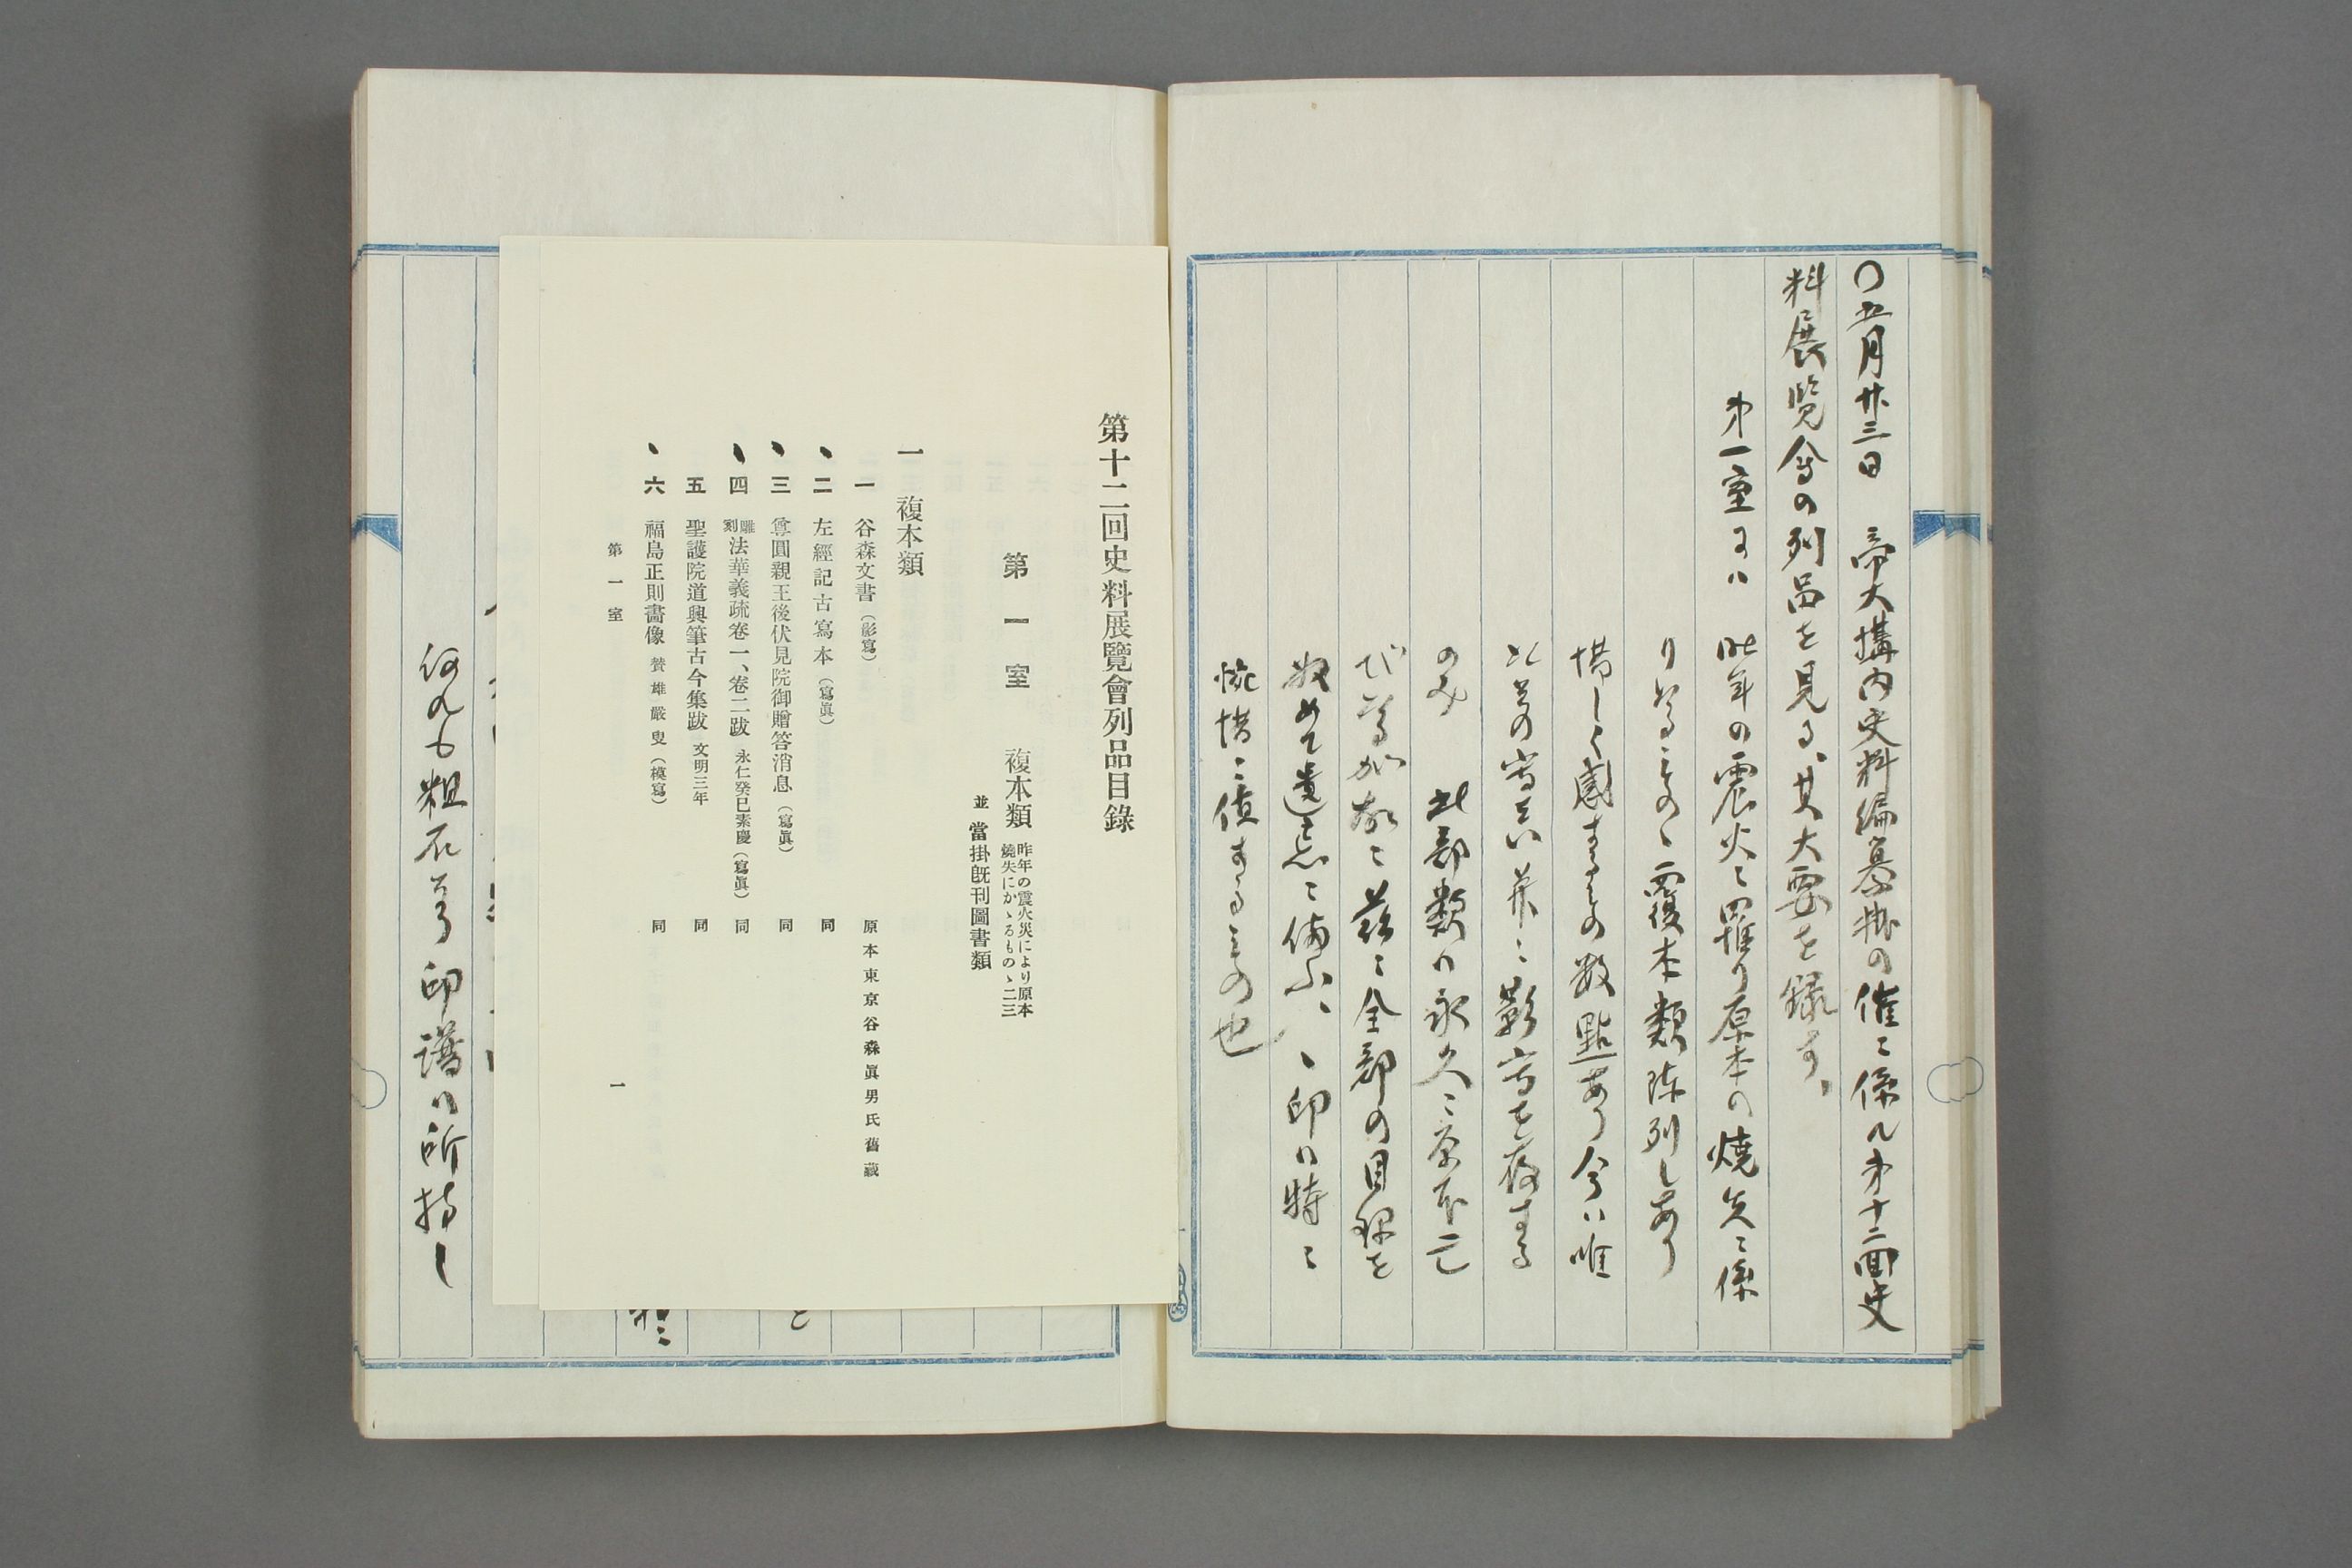 〇五月廿三日　帝大構内史料編纂掛の催ニ係ル第十二回史
料展覧会の列品を見る、其大要を録す、
第一室にハ　昨年の震火ニ罹り原本の焼失ニ係
りたるものゝ覆本類陳列しあり
惜しく感するもの数點あり今ハ唯
のみ　此部類ハ永久ニ原本亡
びたるが故ニ茲ニ全部の目録を
収めて遺忘ニ備ふ、、印ハ特ニ
惋惜ニ値するもの也
第十二回史料展覽會列品目錄
第一室　複本類　昨年の震火災により原本燒失にかゝるものゝ二三
並　當掛既刊圖書類
一　複本類
一　谷森文書（影寫）　原本東京谷森眞男氏舊藏
二　左經記古寫本（寫眞）　同
三　尊圓親王後伏見院御贈答消息（寫眞）　同
四　雕刻法華義疏卷一、卷二跋　永仁癸巳素慶（寫眞）　同
五　聖護院道興筆古今集跋　文明三年　同
六　福島正則畫像　贊雄嚴叟（模寫）　同
第一室　一
何れも粗石なる印譜ハ所持し